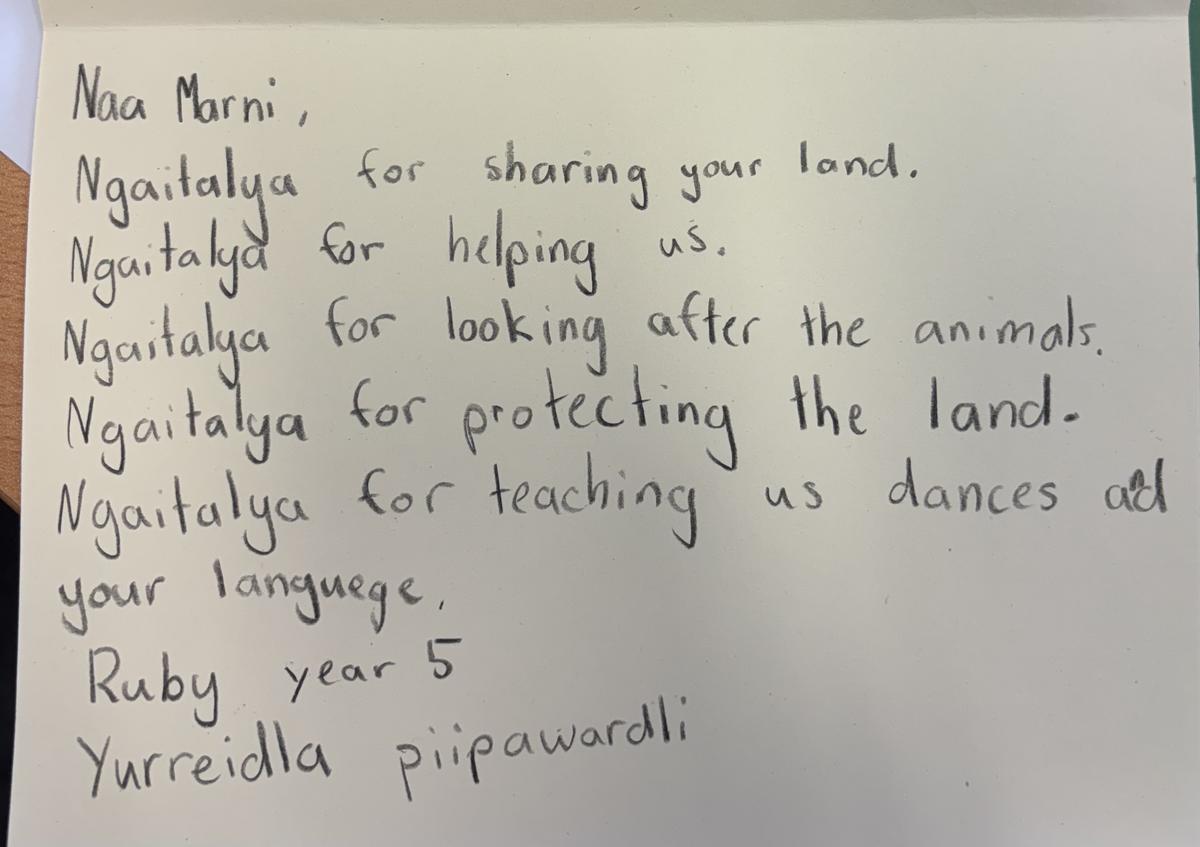 Naa Marni,
Ngaitalya for sharing your land.
Ngaitalya for helping us.
Ngaitalya for looking after the animals.
Ngaitalya for protecting the land.
Ngaitalya for teaching us dances ad
your languege.
Ruby year 5
Yurreidla piipawardli